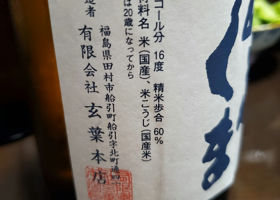 コール分 16度 精米歩合 60%
材料名 米(国産)、米こうじ(国産米)
は20歳になってから
造者
福島県田村市船引町船引字北町通41
有限会社 玄葉本店
しま